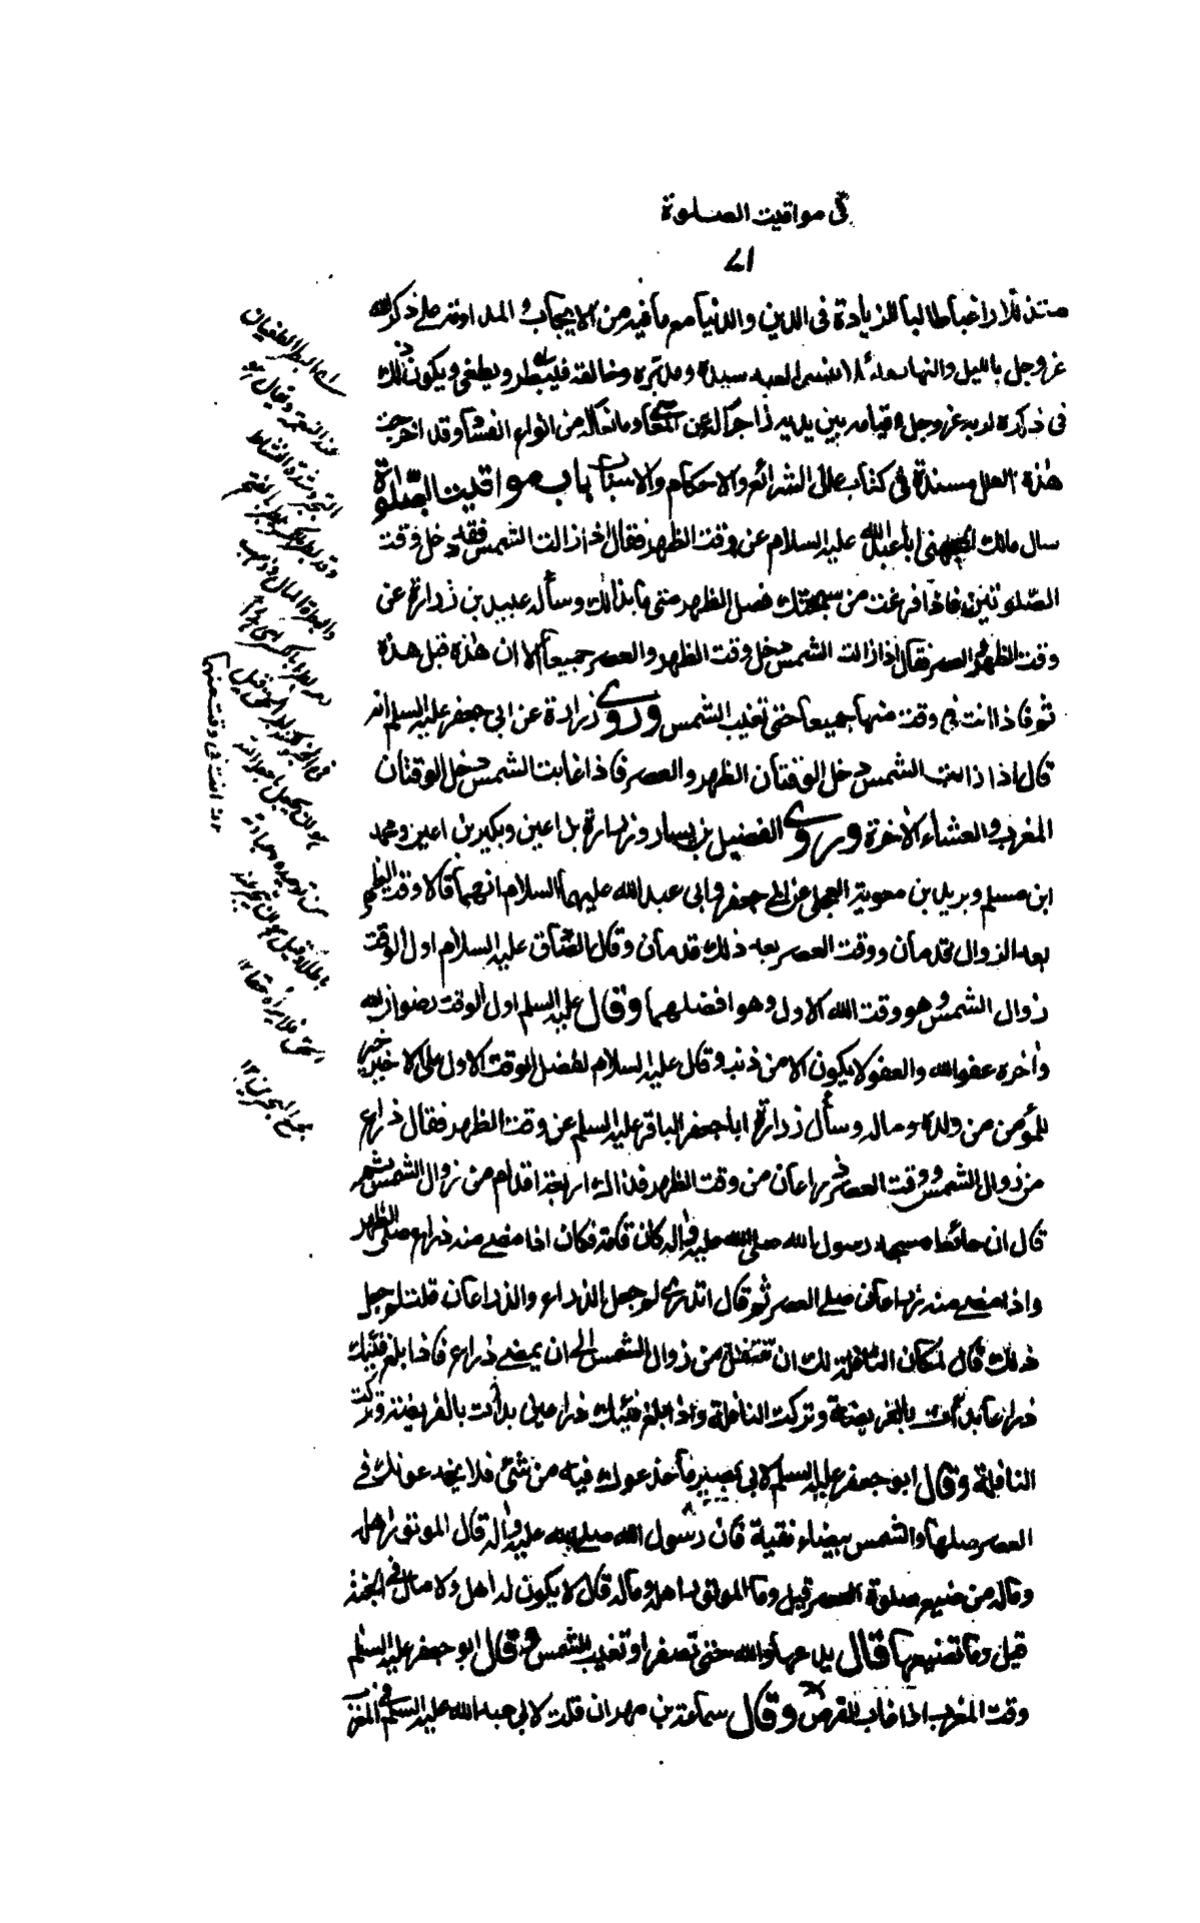 في مواقيت الصلوة
٧١
متذللا راغبا طالبا للزيادة في الدين والدنيا مع ما فيه من الايجاب والمداومة على ذكر الله
عز وجل بالليل والنهار لئلا ينسى العبد سيده ومدبره وخالقه فيبطر ويطغى ويكون ذلك
في ذكره لربه عز وجل وقيامه بين يديه زاجرا له عن المعاصي ومانعا له من انواع الفساد وقد اخرجت
هذه العلل مسندة في كتاب علل الشرائع والاحكام والاسباب باب مواقيت الصلوة
سال مالك الجهني ابا عبد الله عليه السلام عن وقت الظهر فقال اذا زالت الشمس فقد دخل وقت
الصلوتين فاذا فرغت من سبحتك فصل الظهر متى ما بدا لك وسأله عبيد بن زرارة عن
وقت الظهر والعصر فقال اذا زالت الشمس دخل وقت الظهر والعصر جميعا الا ان هذه قبل هذه
ثم فاذا انت في وقت منهما جميعا حتى تغيب الشمس وروى زرارة عن ابي جعفر عليه السلم انه
قال اذا زالت الشمس دخل الوقتان الظهر والعصر فاذا غابت الشمس دخل الوقتان
المغرب والعشاء الاخرة وروى الفضيل بن يسار وزرارة بن اعين وبكير بن اعين ومحمد
ابن مسلم وبريد بن معوية العجلي عن ابي جعفر وابي عبد الله عليهما السلام انهما قالا وقت الظهر
بعد الزوال قدمان ووقت العصر بعد ذلك قدمان وقال الصادق عليه السلام اول الوقت
زوال الشمس وهو وقت الله الاول وهو افضلهما وقال عليه السلم اول الوقت رضوان الله
واخره عفو الله والعفو لا يكون الا من ذنب وقال عليه السلام لفضل الوقت الاول على الاخير خير
للمؤمن من ولده وماله وسأل زرارة ابا جعفر الباقر عليه السلم عن وقت الظهر فقال ذراع
من زوال الشمس ووقت العصر ذراعان من وقت الظهر فذاك اربعة اقدام من زوال الشمس ثم
قال ان حائط مسجد رسول الله صلى الله عليه واله كان قامة فكان اذا مضى منه ذراع صلى الظهر
واذا مضى منه ذراعان صلى العصر ثم قال اتدري لم جعل الذراع والذراعان قلت لم جعل
ذلك قال لمكان النافلة لك ان تتنفل من زوال الشمس الى ان يمضي ذراع فاذا بلغ فيئك
ذراعا بدأت بالفريضة وتركت النافلة واذا بلغ فيئك ذراعين بدأت بالفريضة وتركت
النافلة وقال ابو جعفر عليه السلم لابي بصير ما خدعوك فيه من شئ فلا يخدعونك في
العصر صلها والشمس بيضاء نقية فان رسول الله صلى الله عليه واله قال الموتور اهله
وماله من ضيع صلوة العصر قيل وما الموتور اهله وماله قال لا يكون له اهل ولا مال في الجنة
قيل وما تضييعها قال يدعها والله حتى تصفر او تغيب الشمس وقال ابو جعفر عليه السلم
وقت المغرب اذا غاب القرص وقال سماعة بن مهران قلت لابي عبد الله عليه السلم في المغرب